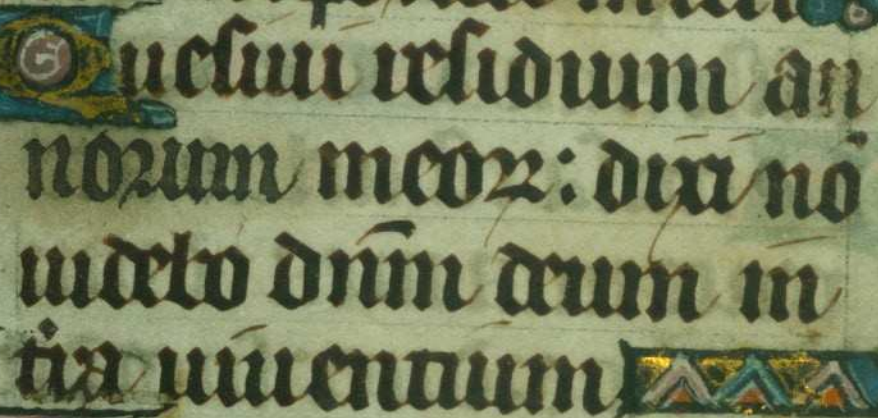 Quesiui residuum an
norum meoꝝ: dixi nō
uidebo dn̄m deum in
t̄ra uiuentium